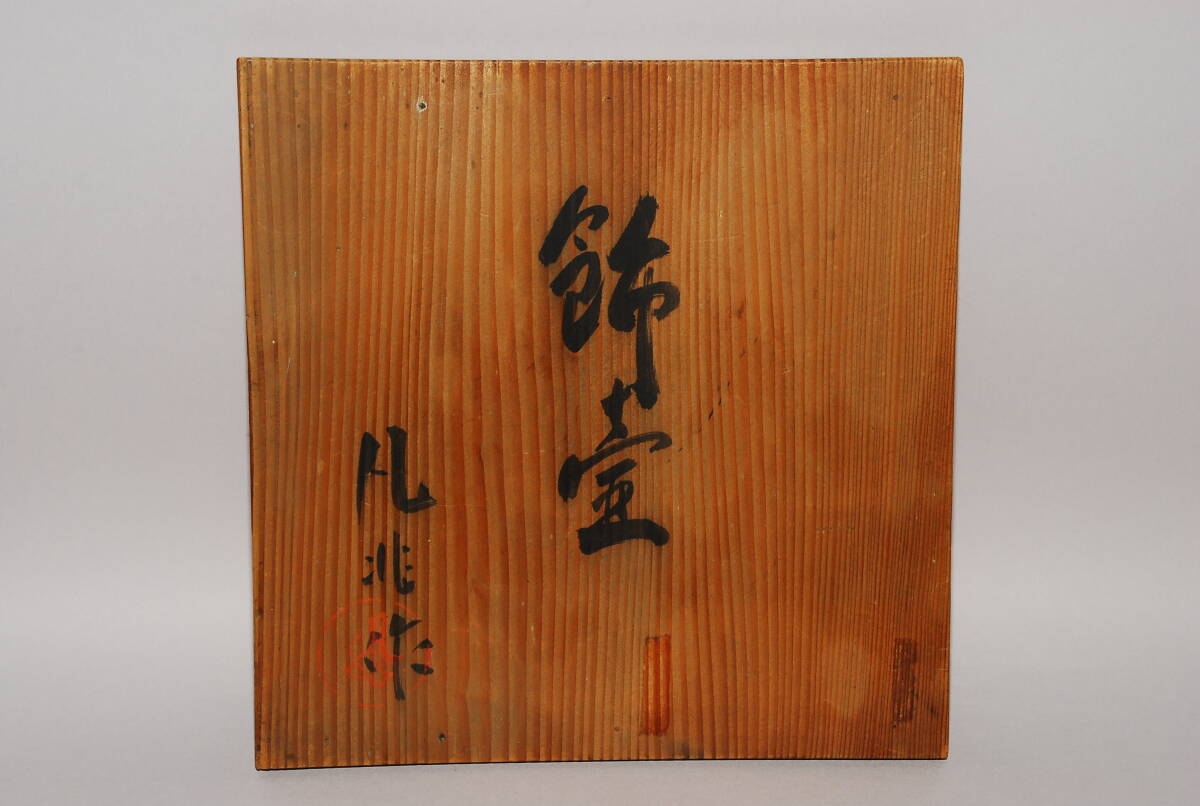 飾壷
凡兆作